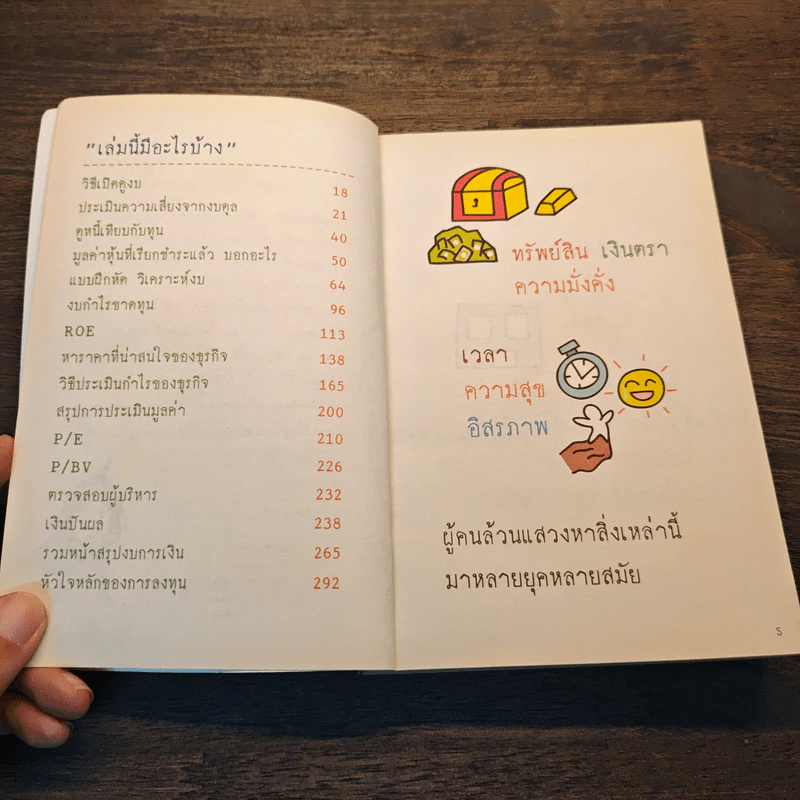 "เล่มนี้มีอะไรบ้าง"
วิธีเปิดดูงบ 18
ประเมินความเสี่ยงจากงบดุล 21
ดูหนี้เทียบกับทุน 40
มูลค่าหุ้นที่เรียกชำระแล้ว บอกอะไร 50
แบบฝึกหัด วิเคราะห์งบ 64
งบกำไรขาดทุน 96
ROE 113
หาราคาที่น่าสนใจของธุรกิจ 138
วิธีประเมินกำไรของธุรกิจ 165
สรุปการประเมินมูลค่า 200
P/E 210
P/BV 226
ตรวจสอบผู้บริหาร 232
เงินปันผล 238
รวมหน้าสรุปงบการเงิน 265
หัวใจหลักของการลงทุน 292
ทรัพย์สิน เงินตรา
ความมั่งคั่ง
เวลา
ความสุข
อิสรภาพ
ผู้คนล้วนแสวงหาสิ่งเหล่านี้
มาหลายยุคหลายสมัย
5